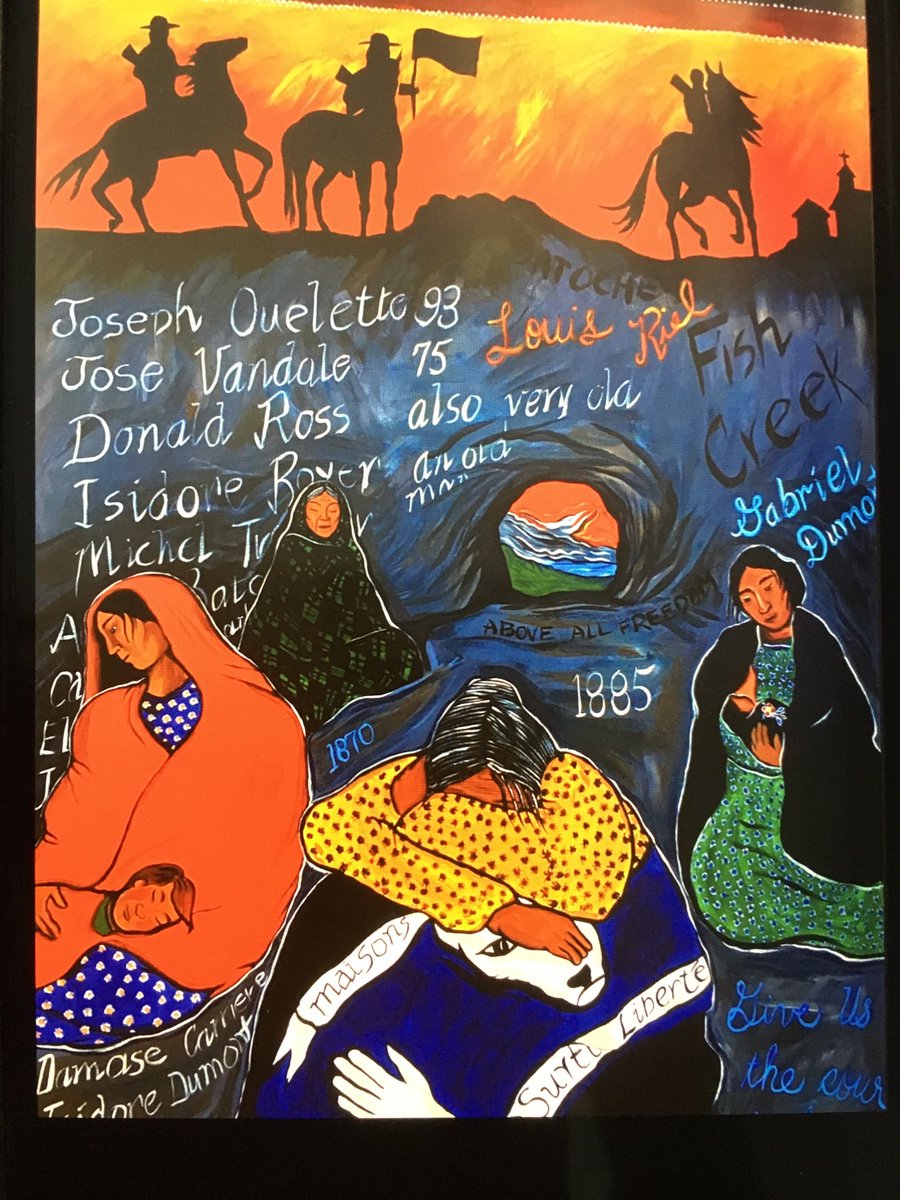 Joseph Ouelette 93
Jose Vandale 75
Donald Ross also very old
Isidore Boyer an old man
Michel
TOCHE
Louis Riel
Fish
Creek
Gabriel
Dumo
ABOVE ALL FREEDOM
1885
1870
maisons
Surté Liberté
Damase Carriere
Isidore Dumont
Give Us
the cour